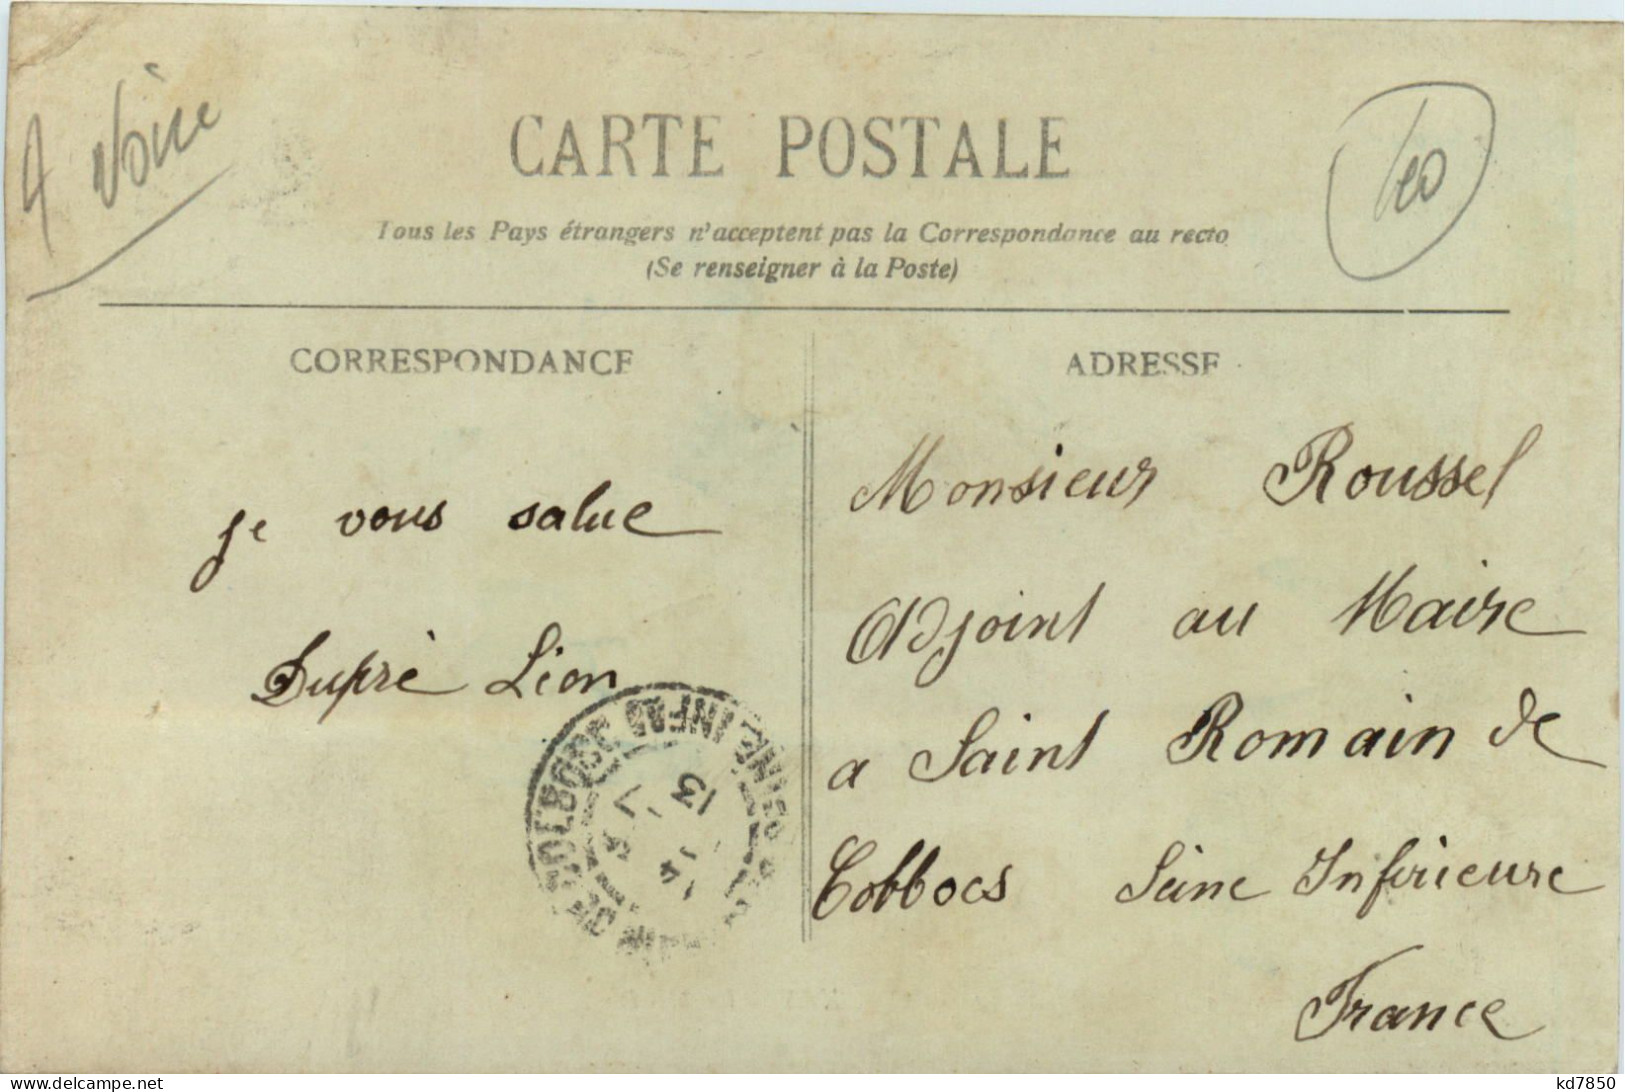 CARTE POSTALE
Tous les Pays étrangers n'acceptent pas la Correspondance au recto
(Se renseigner à la Poste)
CORRESPONDANCE
ADRESSE
je vous salue
Dupré Lion
Monsieur Roussel
Adjoint au Maire
a Saint Romain de
Colbocs Seine Inferieure
France
DE COLBOSC
SEINE INFRE
14
5 - 7
13
100
delcampe.net
kd7850